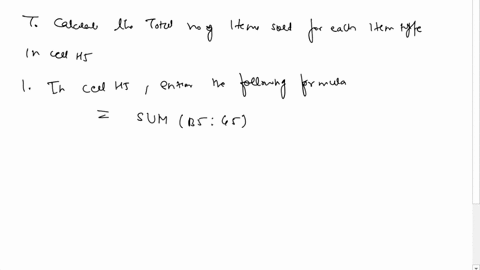 T. Calculate the Total no of Items sold for each item type
In cell H5
1. In cell H5, enter the following formula
= SUM (B5:G5)